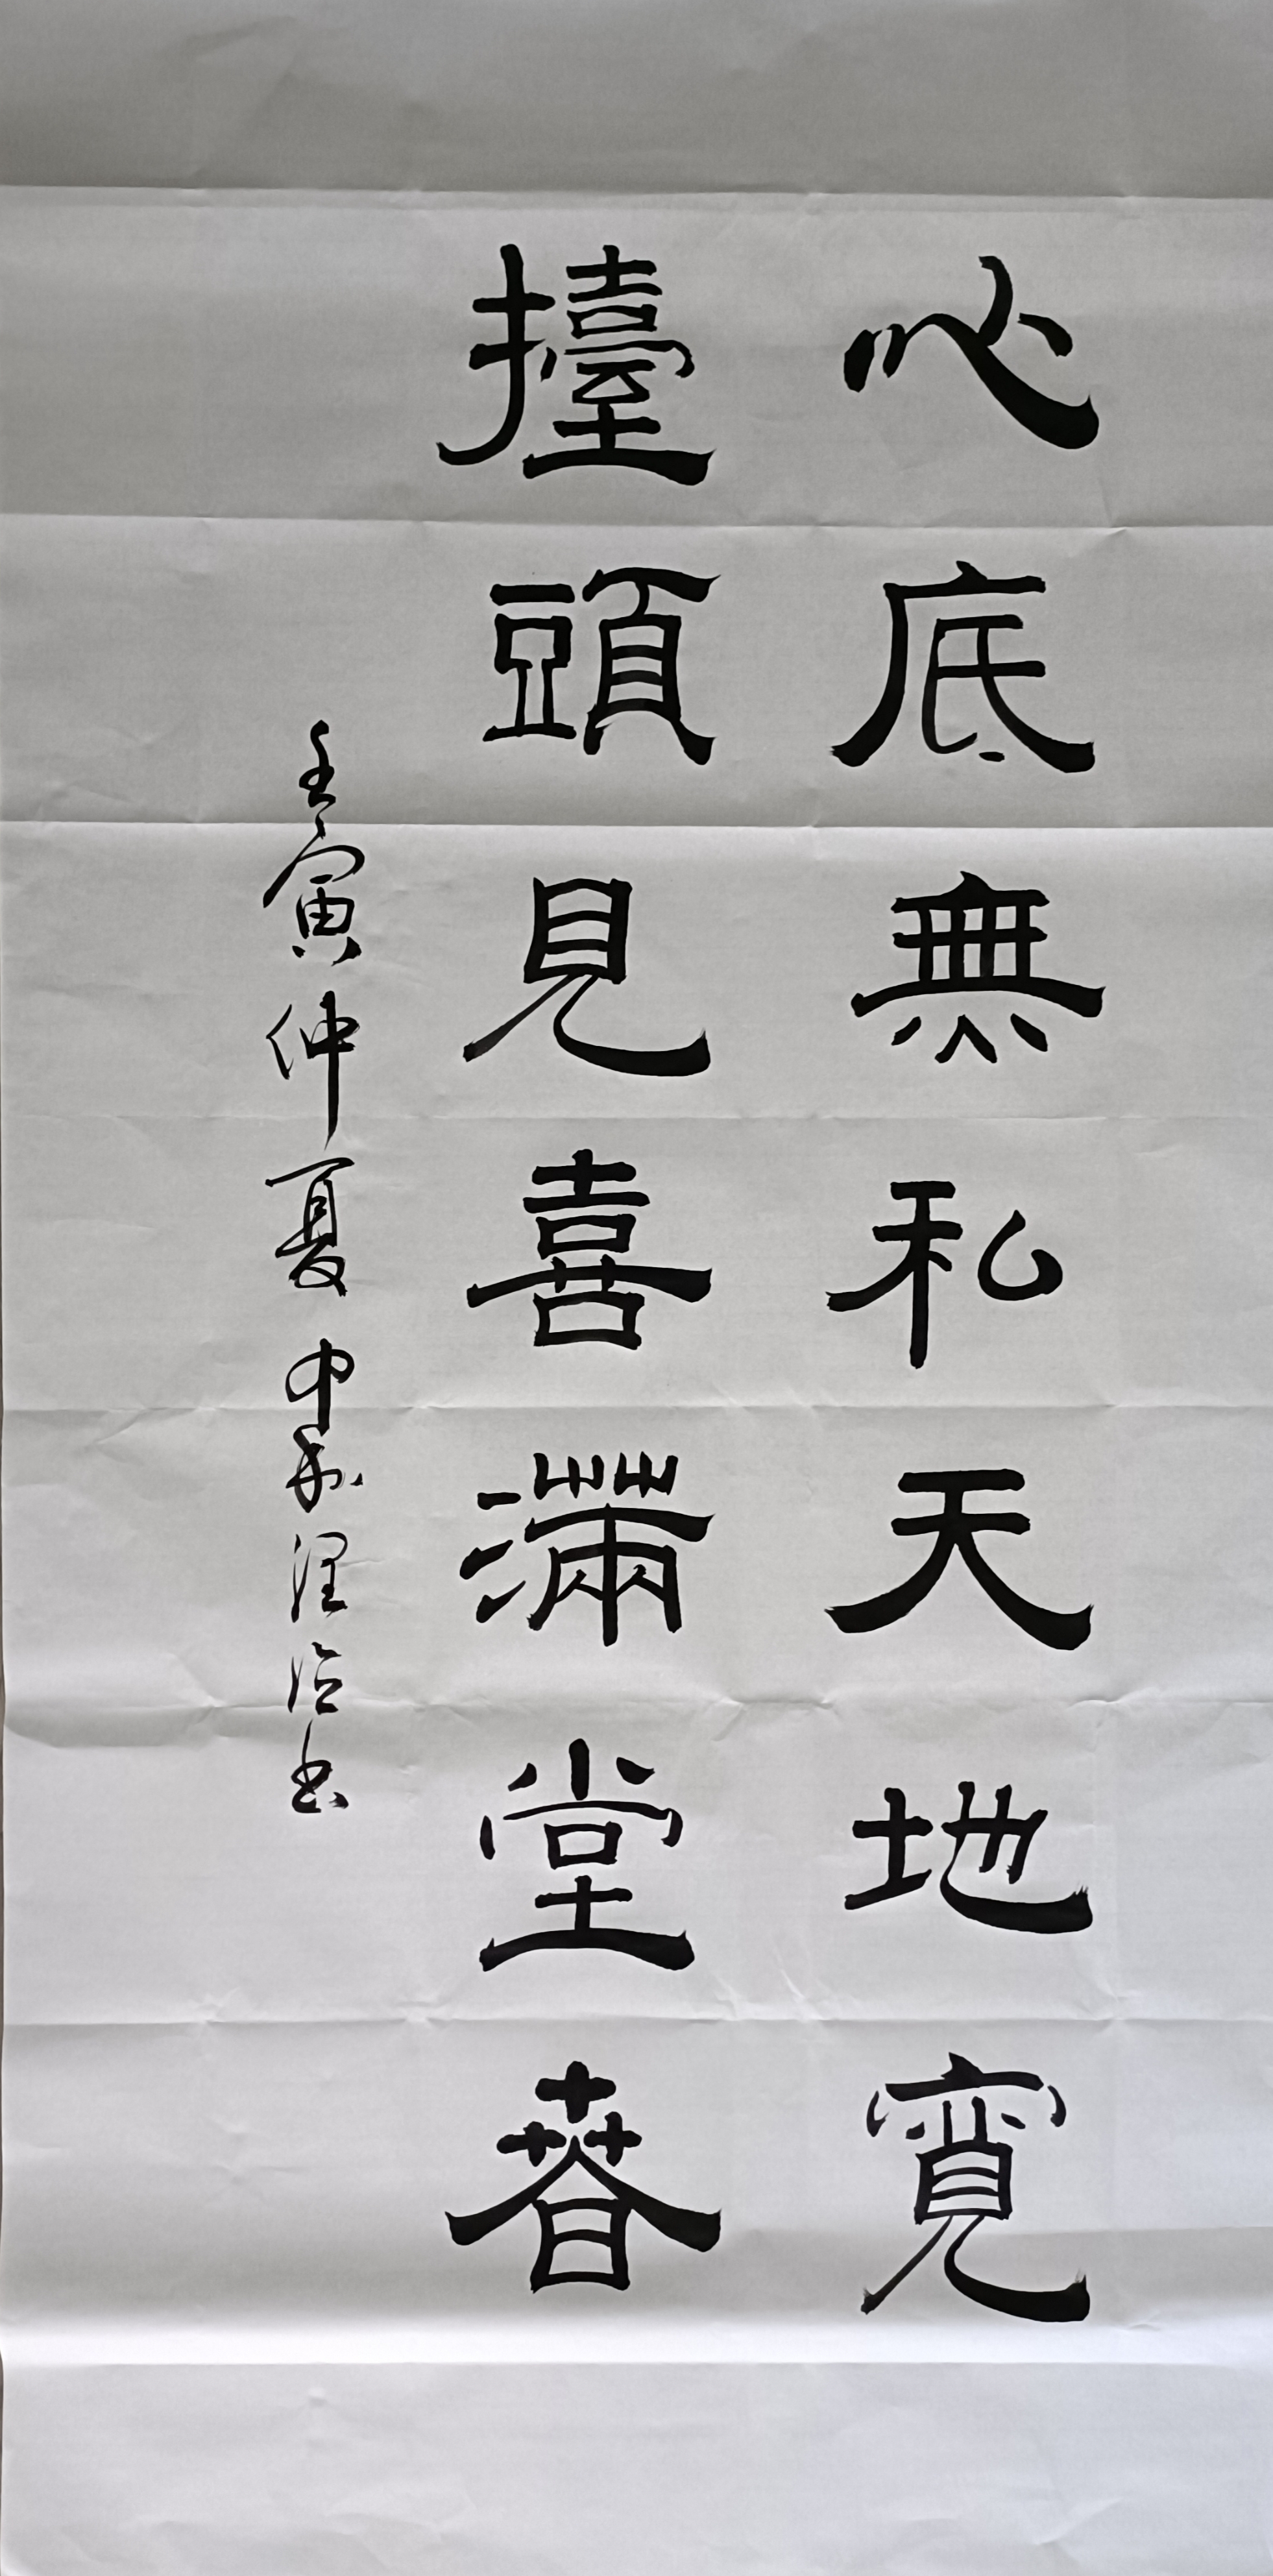 心底無私天地寬
擡頭見喜滿堂春
壬寅仲夏中秋書